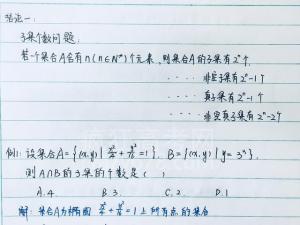 结论一:
子集个数问题:
若一个集合A含有n(n∈N*)个元素,则集合A的子集有2ⁿ个.
···· 非空子集有2ⁿ-1个
···· 真子集有2ⁿ-1个
···· 非空真子集有2ⁿ-2个
例1: 设集合A={(x,y)| + =1}, B={(x,y)|y=3ˣ},
则A∩B的子集的个数是( )
A.4. B.3. C.2. D.1
解: 集合A为椭圆 + =1上所有点的集合